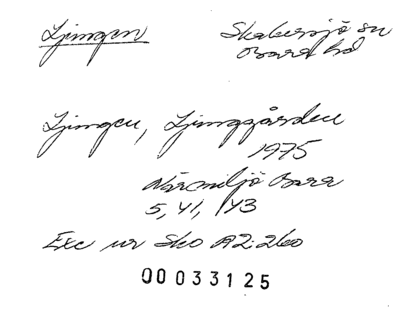 Ljungen
Skabersjö sn
Bara hd
Ljungen, Ljunggården
1975
Närmiljö Bara
5, 41, 43
Exc ur Sko A2:260
00033125